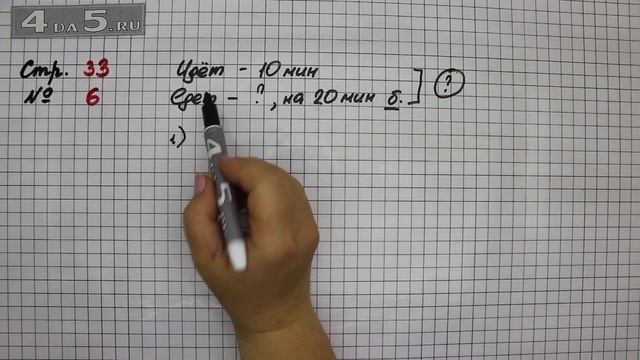 4DA5.RU
Стр. 33 Идёт - 10 мин
№ 6 Едет - ?, на 20 мин б. ?
1)